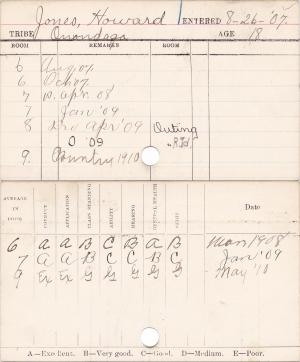 Jones, Howard ENTERED 8-26-'07
TRIBE Onondaga AGE 18
ROOM REMARKS ROOM
6 Aug 07
6 Oct 07
7 p. Apr. 08
7 Jan '09
8 Apr '09 Outing
O '09
9. Country 1910
AVERAGE IN DEPTS CONDUCT APPLICATION CLASS STANDING ABILITY HEARING GENERAL HEALTH SIGHT Date
6 A A B C B A B Mar 1908
7 A A B C C B C Jan '09
9 Ex Ex G G G G G May '10
A—Excellent. B—Very good. C—Good. D—Medium. E—Poor.